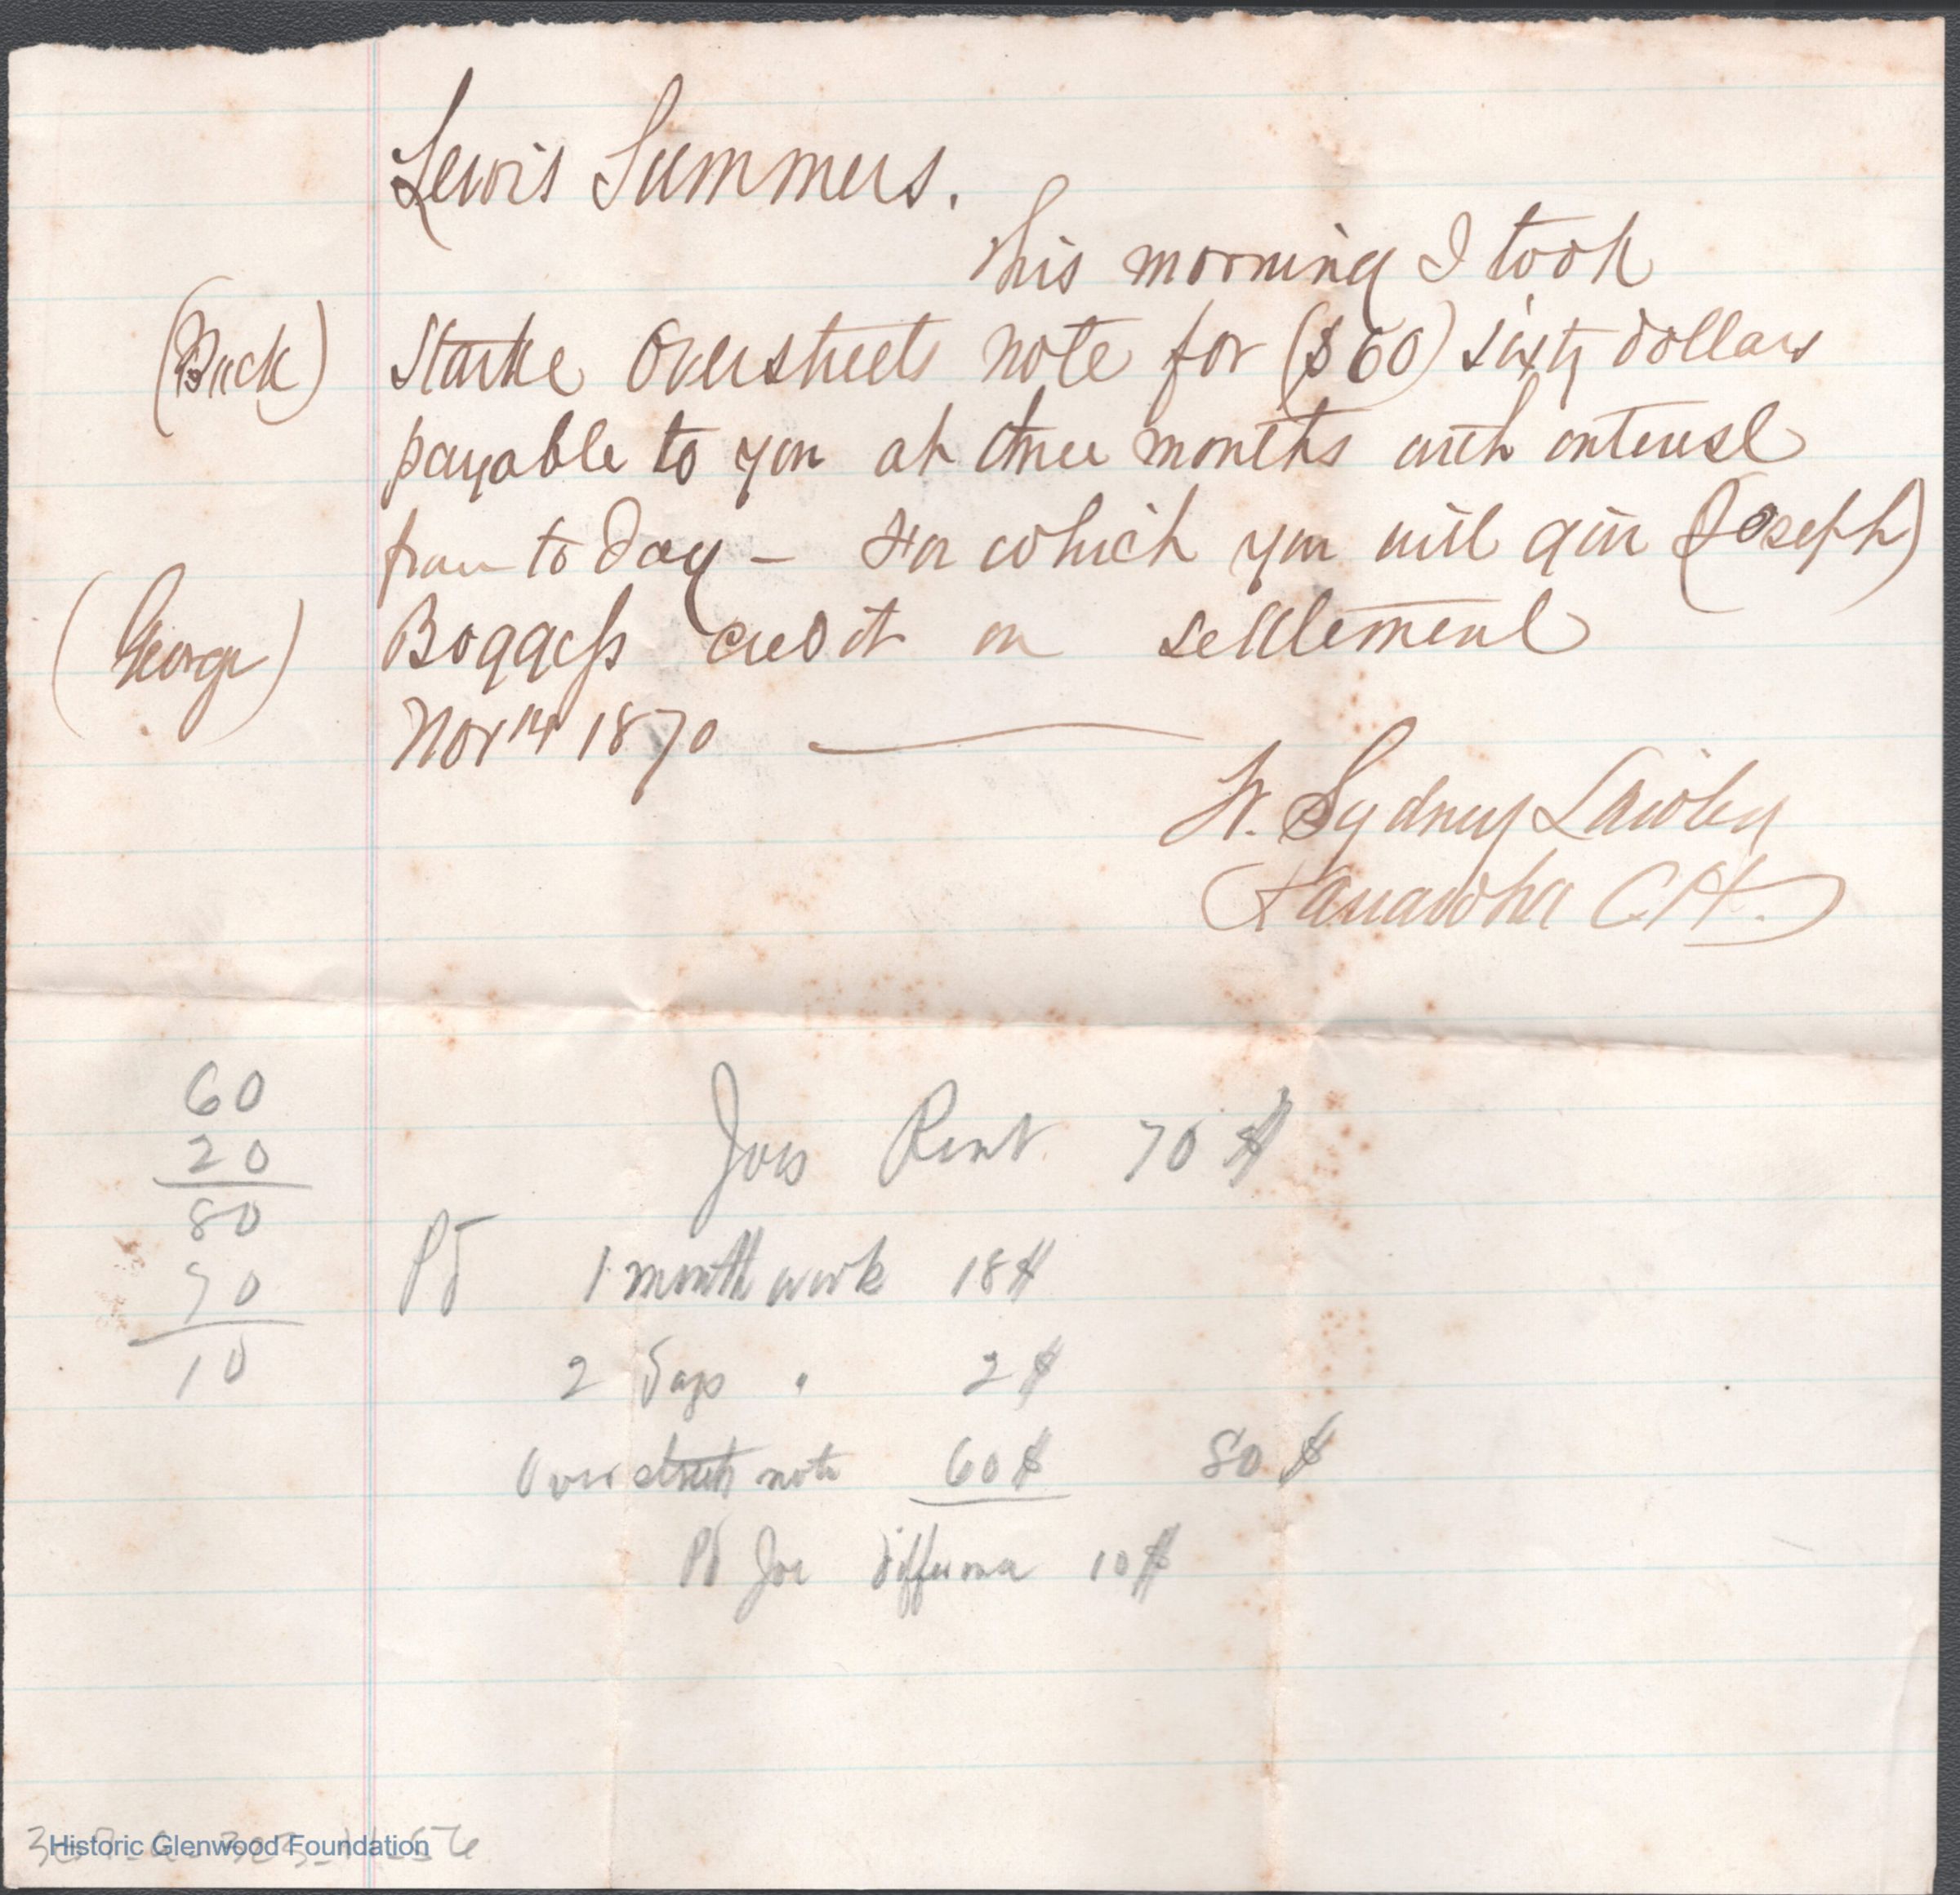 Lewis Summers.
This morning I took
(Buck) Starke Overstreets note for ($60) sixty dollars
payable to you at three months with interest
from to day – For which you will give (Joseph)
(George) Boggess credit on settlement
Nov 14 1870
W. Sydney Laidley
Kanawha C.H.
60
20
80
70
10
Joes Rent 70 $
Pd 1 month work 18 $
2 Days " 2 $
Overstreets note 60 $ 80 $
Pd Joe difference 10 $
Historic Glenwood Foundation